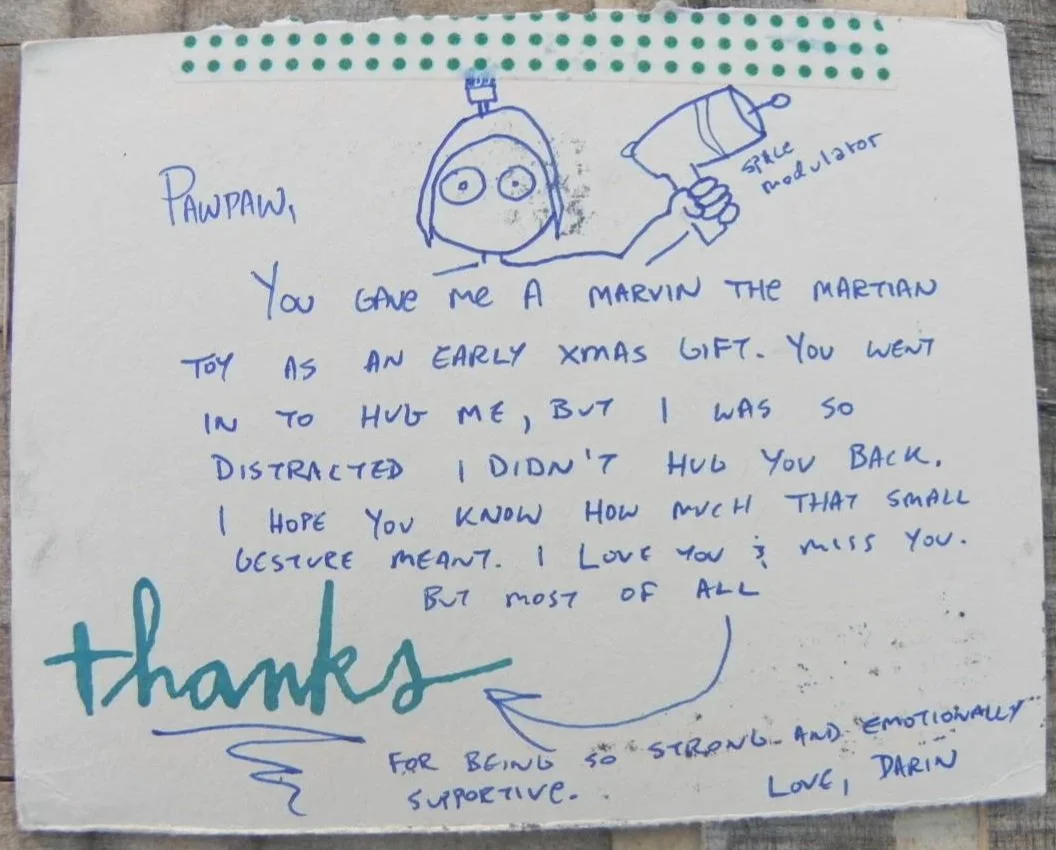 SPACE
modulator
PAWPAW,
YOU GAVE ME A MARVIN THE MARTIAN
TOY AS AN EARLY XMAS GIFT. YOU WENT
IN TO HUG ME, BUT I WAS SO
DISTRACTED I DIDN'T HUG YOU BACK.
I HOPE YOU KNOW HOW MUCH THAT SMALL
GESTURE MEANT. I LOVE YOU & MISS YOU.
BUT MOST OF ALL
thanks
FOR BEING SO STRONG AND EMOTIONALLY
SUPPORTIVE.
LOVE, DARIN